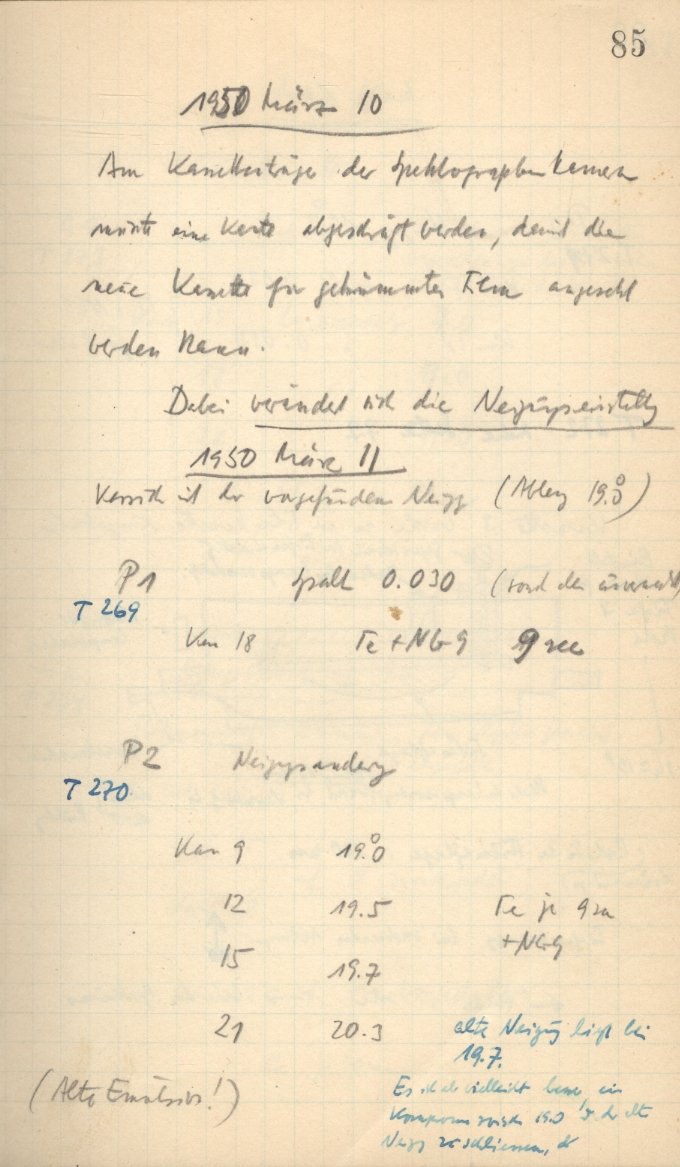 85
1950 März 10
Am Kassettenträger der Spektrographenkamera
musste eine Kante abgeschrägt werden, damit die
neue Kassette für gekrümmten Film angesetzt
werden kann.
Dabei verändert sich die Neigungseinstellg
1950 März 11
ist der vorgefundenen Neigg (Ablesg 19.0)
P1 Spalt 0.030 (sonst den
T 269
18 Te + NG 9 9 sec
P2 Neiggsänderg
T 270
9 19.0
12 19.5 Te je 9 sec
+NG9
15 19.7
21 20.3 alte Neigung liegt bei
19.7.
(Alte Emulsion!) Es ist aber vielleicht besser, ein
Kompromiss zwischen 19.0 u. der alten
Neigg zu schliessen,